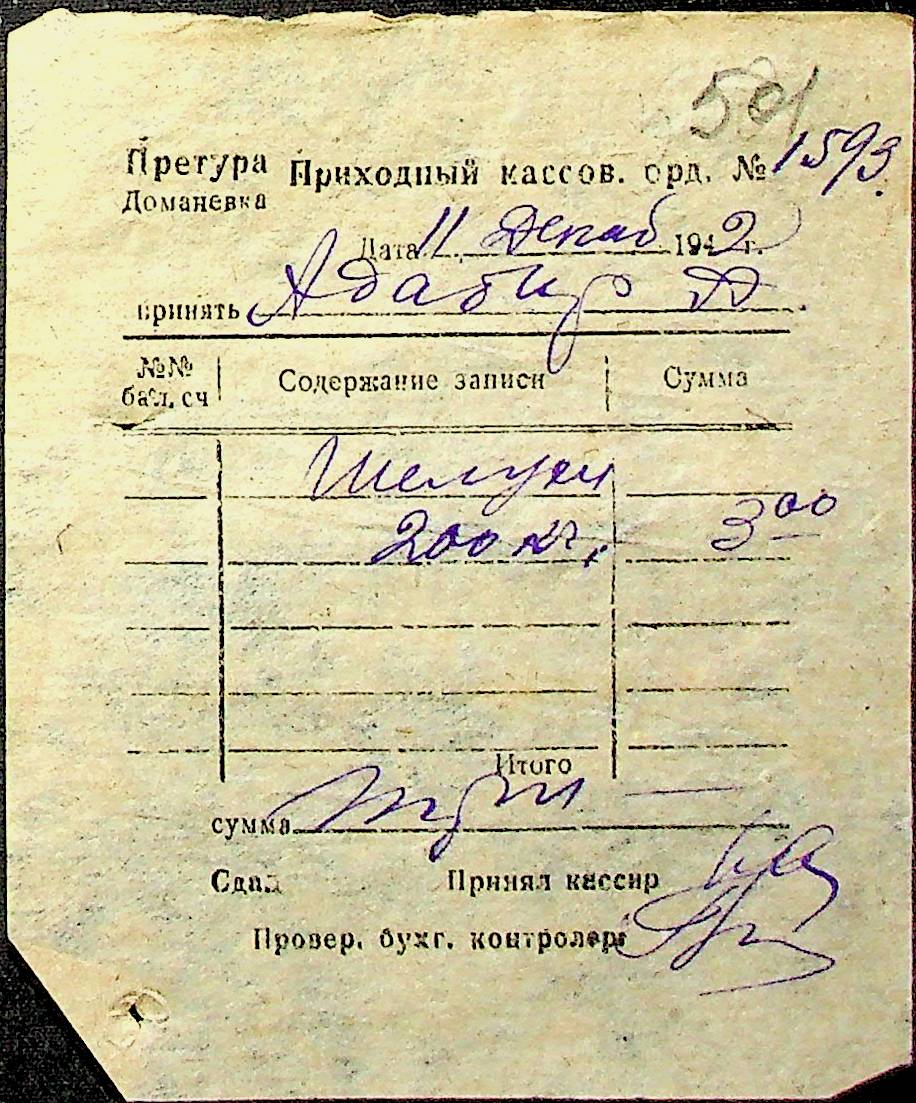 591
Претура Приходный кассов. орд. № 1593.
Доманевка
Дата 11 Декаб 1942 г.
принять Адабир Д.
№№ бал. сч Содержание записи Сумма
Шелухи
200 кг. 3 00
Итого
сумма Три —
Сдал Принял кассир
Провер. бухг. контролер